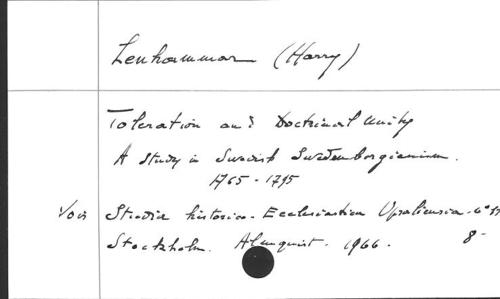 Lenhammar (Harry)
Toleration and Doctrinal Unity
A Study in Swedish Swedenborgianism.
1765-1795
Voir Studia historico-Ecclesiastica Upsaliensia-
Stockholm. Almquist. 1966. 8-